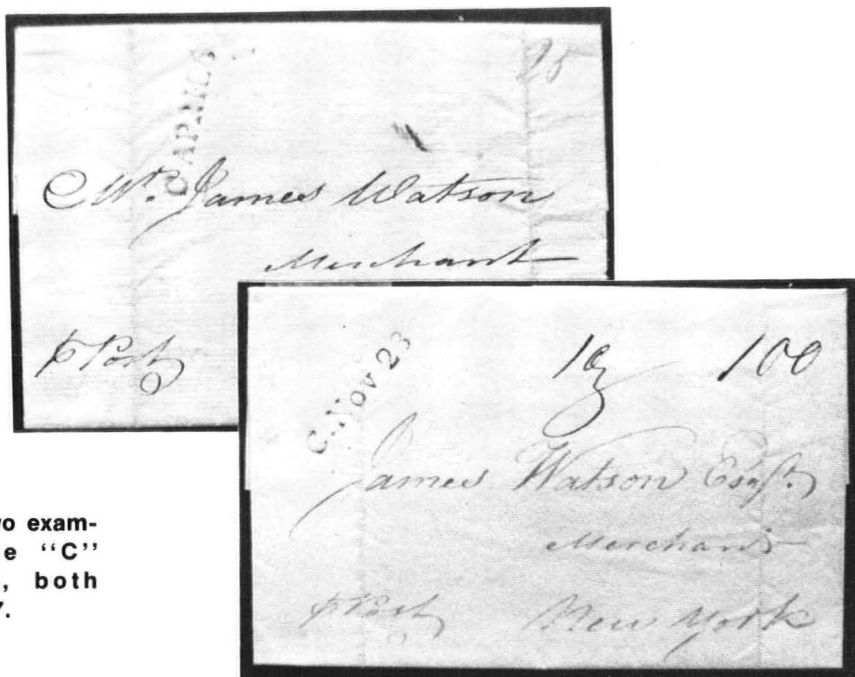 25
C APRIL 5
Mr. James Watson
Merchant
p Post
C. Nov 23
100
James Watson Esqr.
Merchant
p Post
New York
wo exam-
e "C"
, both
7.